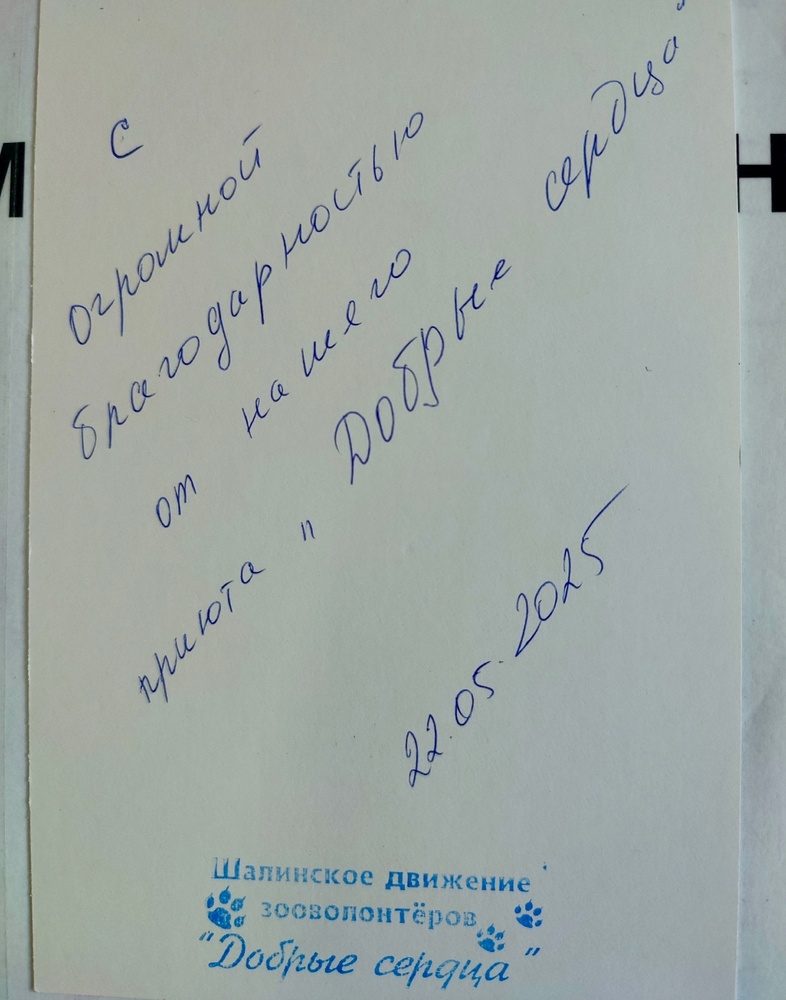 С
огромной
благодарностью
от нашего
приюта "Добрые сердца"
22.05.2025
Шалинское движение
зооволонтёров
"Добрые сердца"